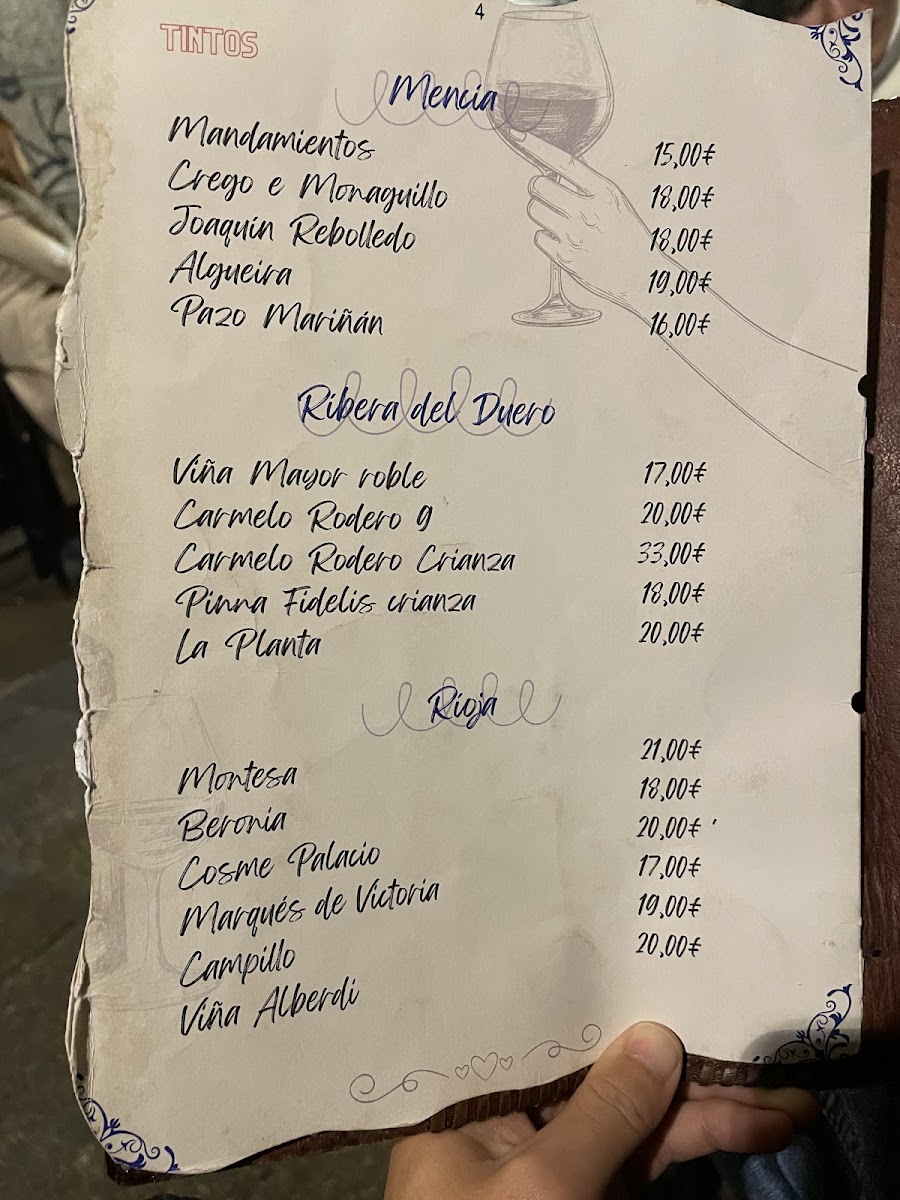 4
TINTOS
Mencía
Mandamientos 15,00€
Crego e Monaguillo 18,00€
Joaquín Rebolledo 18,00€
Algueira 19,00€
Pazo Mariñán 16,00€
Ribera del Duero
Viña Mayor roble 17,00€
Carmelo Rodero 9 20,00€
Carmelo Rodero Crianza 33,00€
Pinna Fidelis crianza 18,00€
La Planta 20,00€
Rioja
Montesa 21,00€
Beronia 18,00€
Cosme Palacio 20,00€
Marqués de Victoria 17,00€
Campillo 19,00€
Viña Alberdi 20,00€